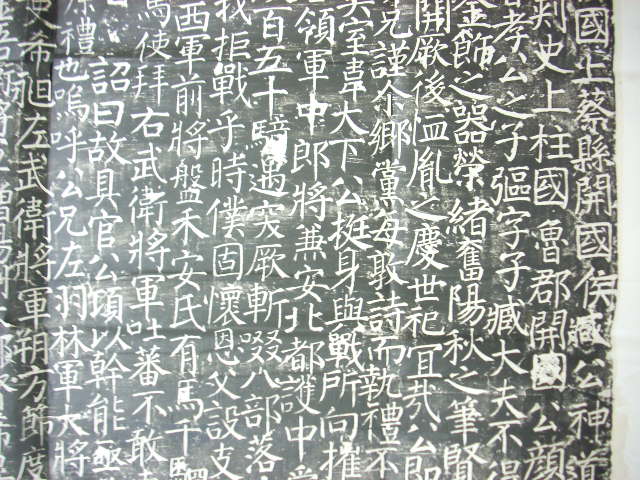 國上蔡縣開國侯臧公神道
刺史上柱國魯郡開國公顏
孝公之子彄字子臧大夫不得
金飾之器榮緒奮陽秋之筆賢
開厥後恤胤之慶世祀宜哉公即
兄謹介鄉黨每敦詩而執禮不
室韋大下公挺身與戰所向摧
領軍中郎將兼安北都護中受
百五十騎遇突厥斬啜八部落
我拒戰乎時僕固懷恩父設支
西軍前將盤禾安氏有馬千駟
馬使拜右武衛將軍吐蕃不敢
詔曰故具官公頃以幹能亟
禮也嗚呼公兄左羽林軍大將
希旭左武衛將軍朔方節度